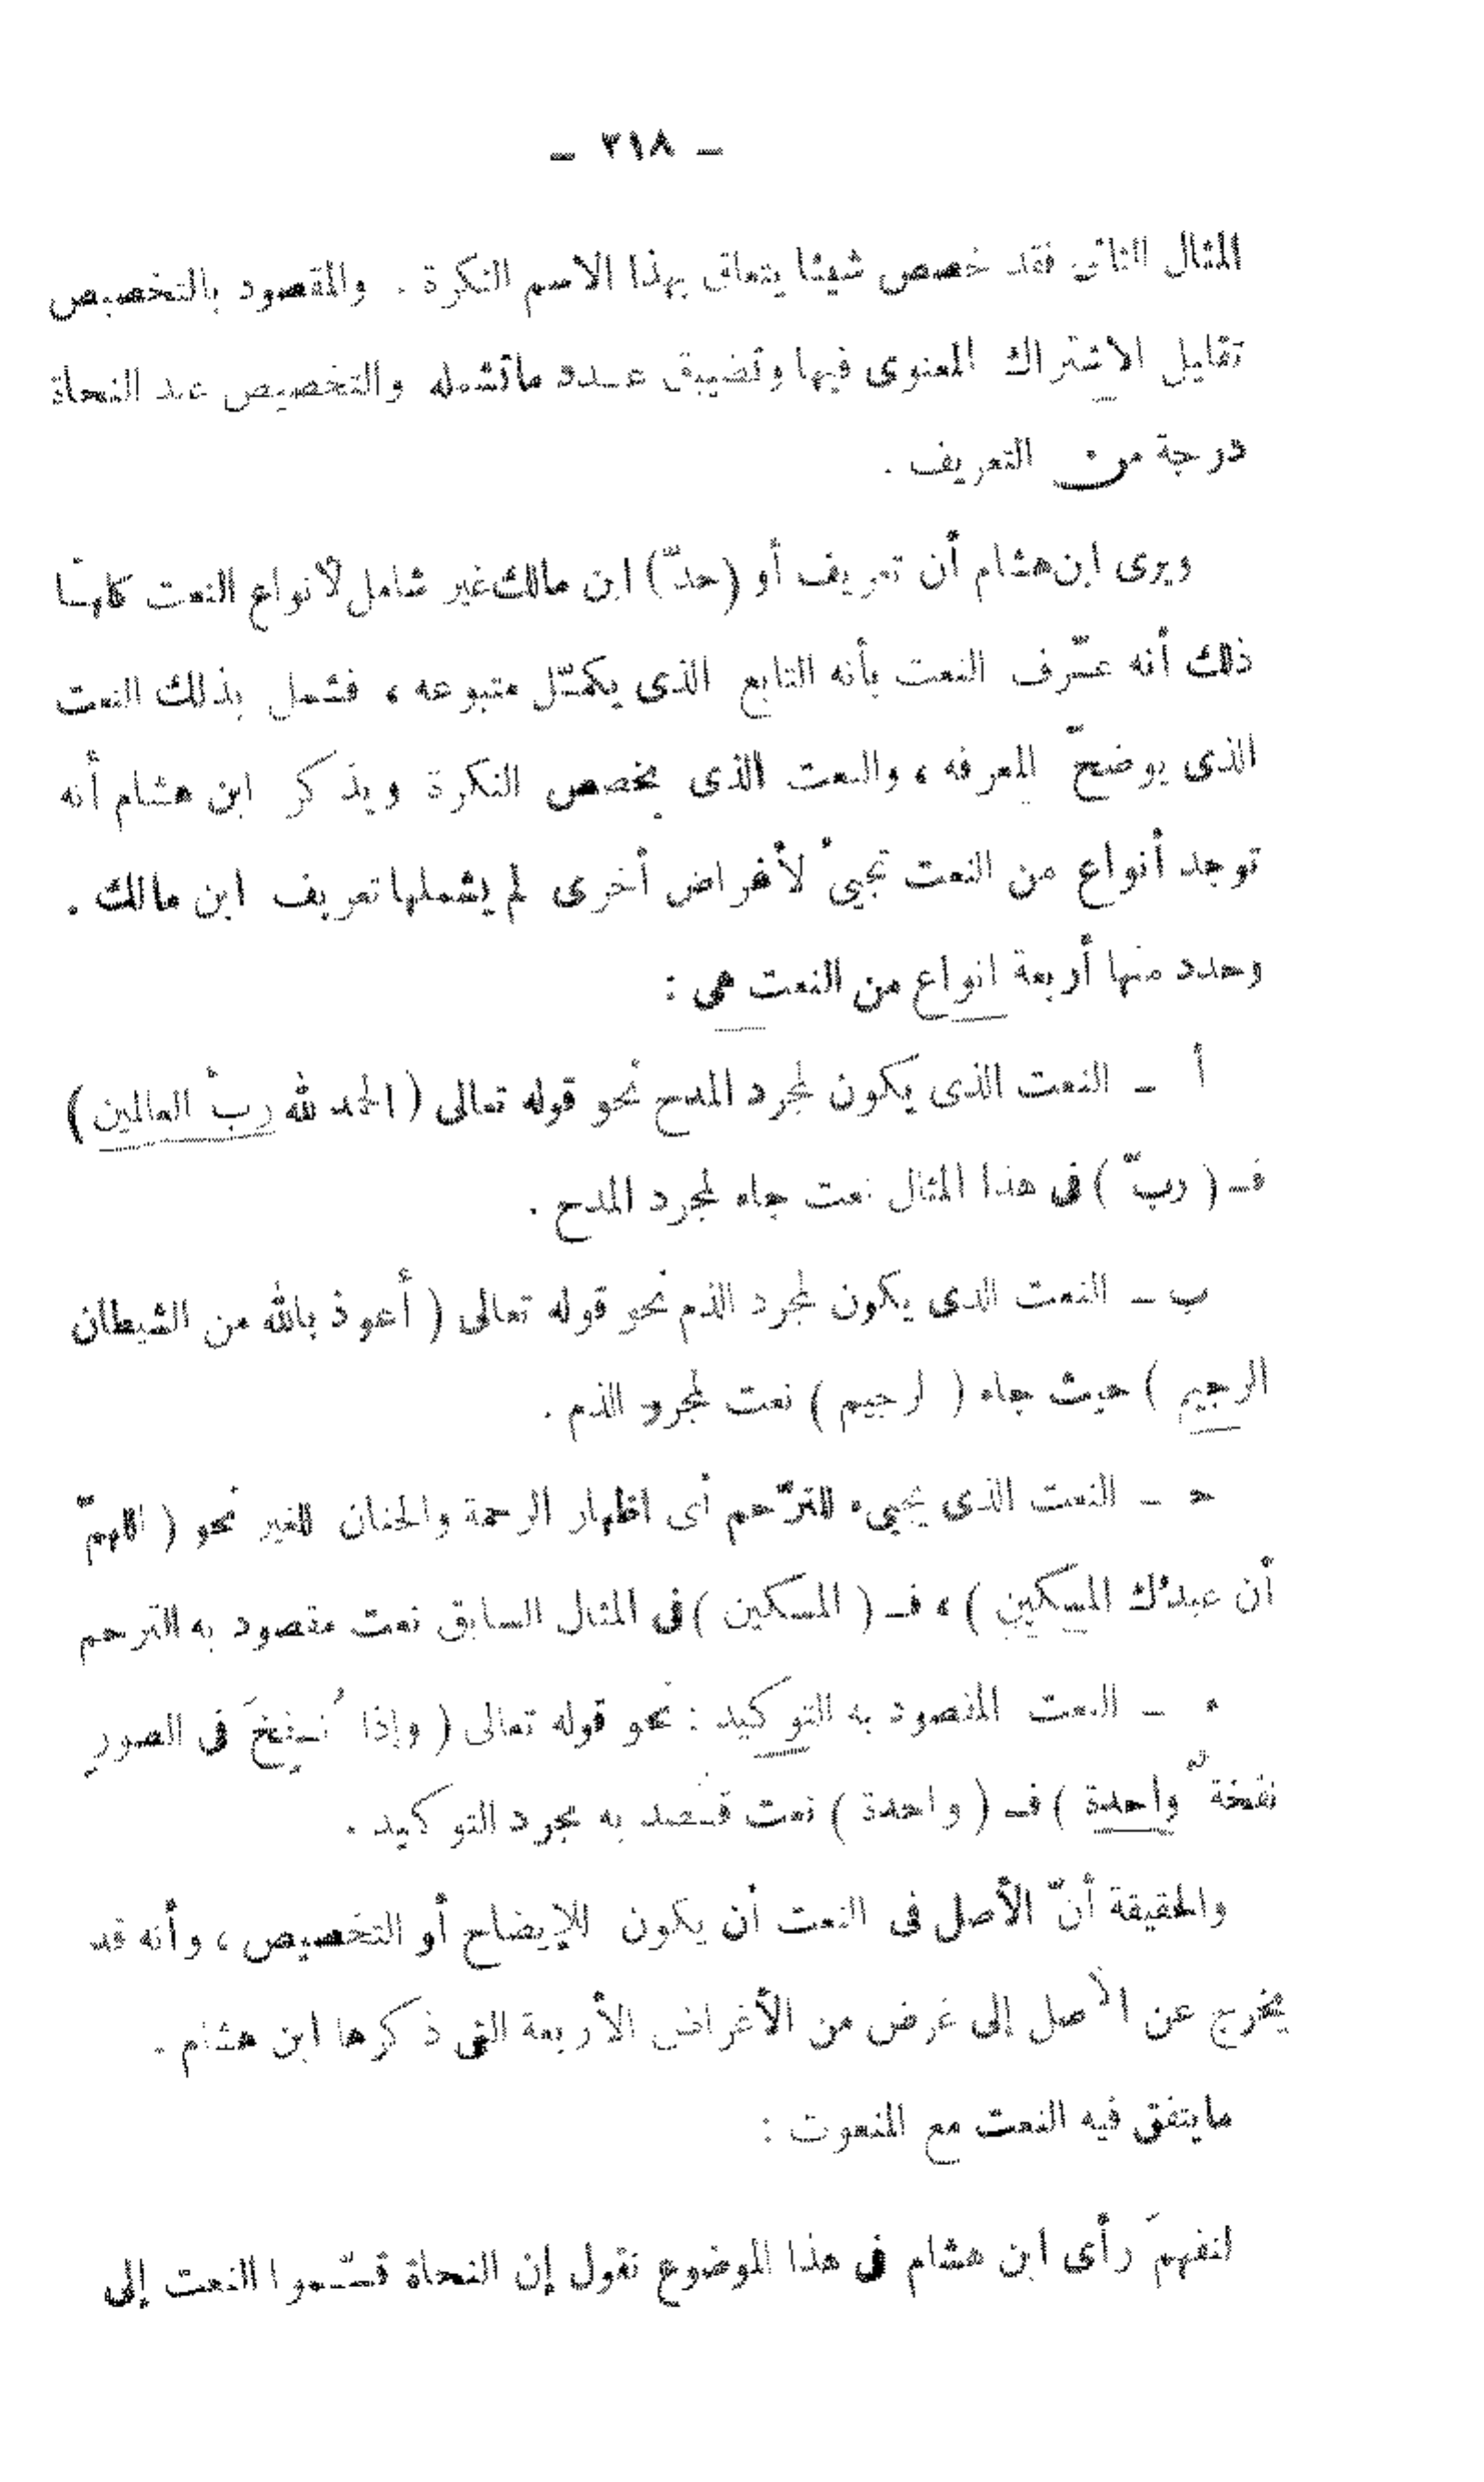 – ٣١٨ –
المثال الثانى فقد خصص شيئا يتعلق بهذا الاسم النكرة . والمقصود بالتخصيص
تقليل الاشتراك المعنوى فيها وتضييق عـدد ماتشمله والتخصيص عند النحاة
درجة من التعريف .
ويرى ابن هشام أن تعريف أو (حدّ) ابن مالك غير شامل لأنواع النعت كلهـا
ذلك أنه عـّرف النعت بأنه التابع الذى يكمـّل متبوعه ، فشمل بذلك النعت
الذى يوضحّ المعرفه ، والنعت الذى يخصص النكرة ويذكر ابن هشام أنه
توجد أنواع من النعت تجيئ لأغراض أخرى لم يشملها تعريف ابن مالك .
وحدد منها أربعة انواع من النعت هى :
أ – النعت الذى يكون لمجرد المدح نحو قوله تعالى ( الحمد لله ربْ العالمين )
فـ ( ربّ ) فى هذا المثال نعت جاء لمجرد المدح .
ب – النعت الذى يكون لمجرد الذم نحو قوله تعالى ( أعوذ بالله من الشيطان
الرجيم ) حيث جاء ( لرجيم ) نعت لمجرد الذم .
حـ – النعت الذى يجيء للترّحم أى اظهار الرحمة والحنان للغير نحو ( اللهمّ
أن عبدُك المسكين ) ، فـ ( المسكين ) فى المثال السابق نعت مقصود به الترحم
ء – النعت المقصود به التوكيد : نحو قوله تعالى ( وإذا نُـفِخَ فى الصورِ
نفخةٌ واحدة ) فـ ( واحدة ) نعت قُـصد به مجرد التوكيد .
والحقيقة أنّ الأصل فى النعت أن يكون للإيضاح أو التخصيص ، وأنه قد
يخرج عن الأصل إلى غرض من الأغراض الأربعة التى ذكرها ابن هشام .
مايتفق فيه النعت مع المنعوت :
لنفهمَ رأى ابن هشام فى هذا الموضوع نقول إن النحاة قسـّموا النعت إلى